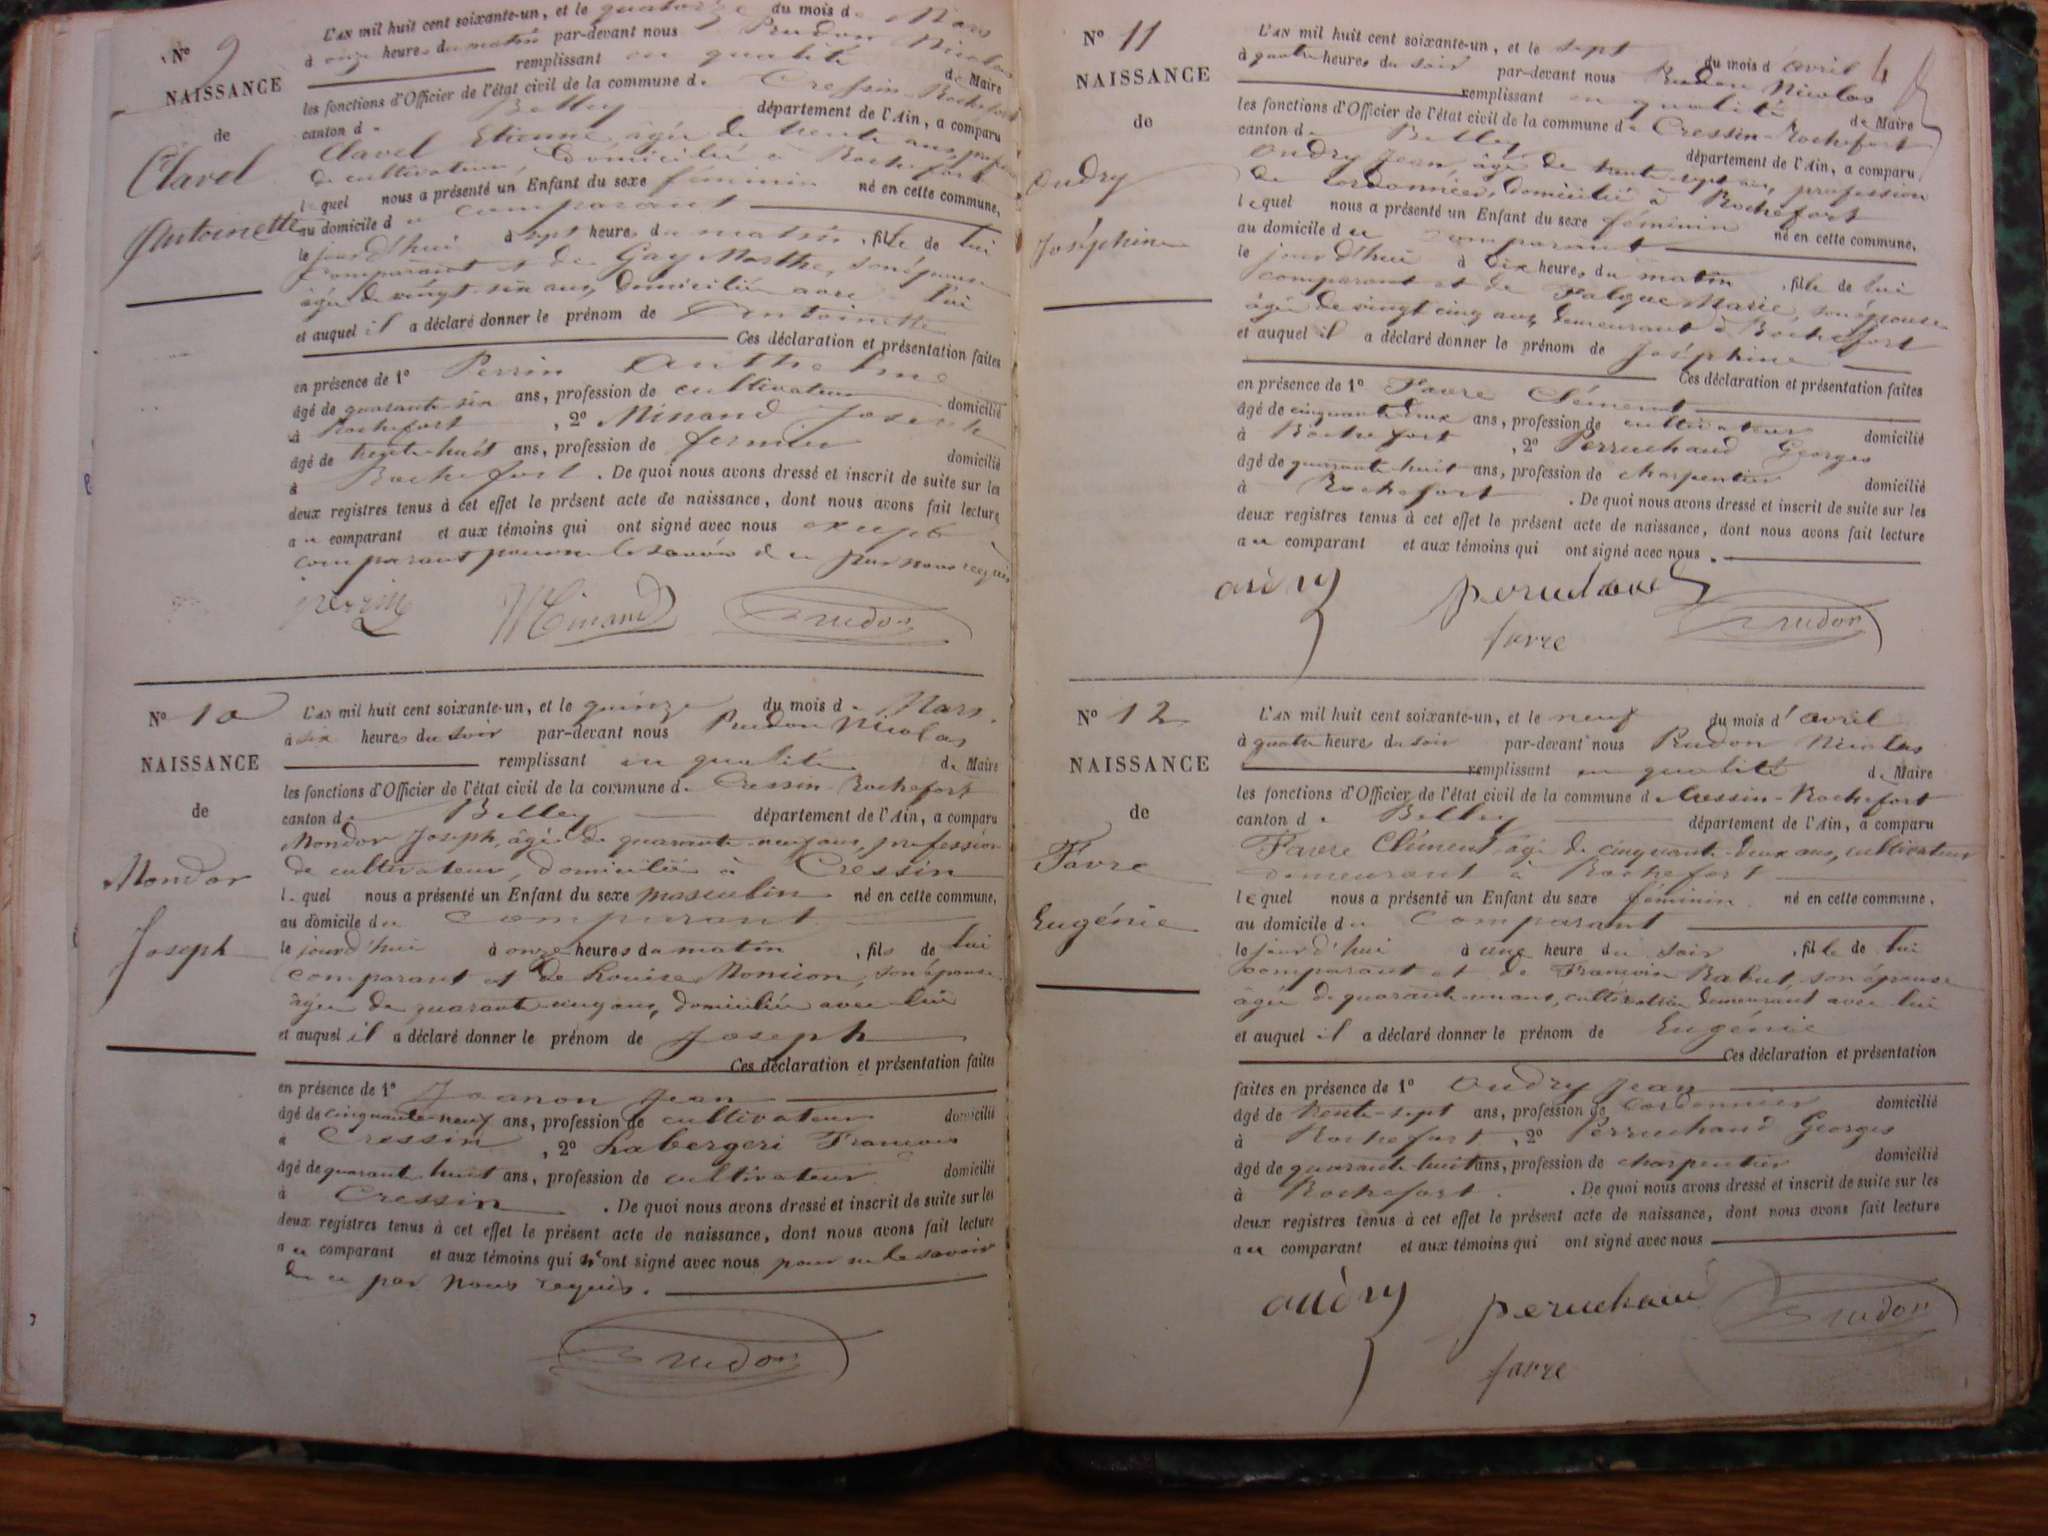 N° 9
NAISSANCE
de
Clavel
Antoinette
L'AN mil huit cent soixante-un, et le quatorze du mois de Mars
à onze heures du matin par-devant nous Prudon Nicolas
remplissant en qualité de Maire
les fonctions d'Officier de l'état civil de la commune de Cressin-Rochefort
canton de Belley département de l'Ain, a comparu
Clavel Etienne âgé de trente ans, profession
de cultivateur, domicilié à Rochefort
lequel nous a présenté un Enfant du sexe féminin né en cette commune,
au domicile du comparant
le jourd'hui à sept heures du matin, fille de lui
comparant et de Gay Marthe, son épouse
âgée de vingt-six ans, domiciliée avec lui
et auquel il a déclaré donner le prénom de Antoinette
Ces déclaration et présentation faites
en présence de 1° Perrin Anthelme
âgé de quarante-six ans, profession de cultivateur domicilié
à Rochefort, 2° Minand Joseph
âgé de trente-huit ans, profession de fermier domicilié
à Rochefort. De quoi nous avons dressé et inscrit de suite sur les
deux registres tenus à cet effet le présent acte de naissance, dont nous avons fait lecture
au comparant et aux témoins qui ont signé avec nous excepté
comparant pour ne le savoir de ce par nous requis
perrin Minand Prudon
N° 10
NAISSANCE
de
Mondor
Joseph
L'AN mil huit cent soixante-un, et le quinze du mois de Mars.
à six heures du soir par-devant nous Prudon Nicolas
remplissant en qualité de Maire
les fonctions d'Officier de l'état civil de la commune de Cressin-Rochefort
canton de Belley département de l'Ain, a comparu
Mondor Joseph, âgé de quarante-neuf ans, profession
de cultivateur, domicilié à Cressin
lequel nous a présenté un Enfant du sexe masculin né en cette commune,
au domicile du comparant
le jourd'hui à onze heures du matin, fils de lui
comparant et de Louise Monion, son épouse
âgée de quarante cinq ans, domiciliée avec lui
et auquel il a déclaré donner le prénom de Joseph
Ces déclaration et présentation faites
en présence de 1° Joanon Jean
âgé de cinquante-neuf ans, profession de cultivateur domicilié
à Cressin, 2° Labergeri François
âgé de quarante huit ans, profession de cultivateur domicilié
à Cressin. De quoi nous avons dressé et inscrit de suite sur les
deux registres tenus à cet effet le présent acte de naissance, dont nous avons fait lecture
au comparant et aux témoins qui n'ont signé avec nous pour ne le savoir
de ce par nous requis.
Prudon
N° 11
NAISSANCE
de
Oudry
Joséphine
L'AN mil huit cent soixante-un, et le sept du mois d'avril
à quatre heures du soir par-devant nous Prudon Nicolas
remplissant en qualité de Maire
les fonctions d'Officier de l'état civil de la commune de Cressin-Rochefort
canton de Belley département de l'Ain, a comparu
Oudry Jean, âgé de trente sept ans, profession
de cordonnier, domicilié à Rochefort
lequel nous a présenté un Enfant du sexe féminin né en cette commune,
au domicile du comparant
le jourd'hui à dix heures du matin, fille de lui
comparant et de Falque Marie, son épouse
âgée de vingt cinq ans, demeurant à Rochefort
et auquel il a déclaré donner le prénom de Joséphine
Ces déclaration et présentation faites
en présence de 1° Favre Clément
âgé de cinquante deux ans, profession de cultivateur domicilié
à Rochefort, 2° Perruchaud Georges
âgé de quarante huit ans, profession de charpentier domicilié
à Rochefort. De quoi nous avons dressé et inscrit de suite sur les
deux registres tenus à cet effet le présent acte de naissance, dont nous avons fait lecture
au comparant et aux témoins qui ont signé avec nous.
oudry peruchaud Prudon
favre
N° 12
NAISSANCE
de
Favre
Eugénie
L'AN mil huit cent soixante-un, et le neuf du mois d'avril
à quatre heures du soir par-devant nous Prudon Nicolas
remplissant en qualité de Maire
les fonctions d'Officier de l'état civil de la commune de Cressin-Rochefort
canton de Belley département de l'Ain, a comparu
Favre Clément âgé de cinquante-deux ans, cultivateur
demeurant à Rochefort
lequel nous a présenté un Enfant du sexe féminin né en cette commune,
au domicile du comparant
le jourd'hui à une heure du soir, fille de lui
comparant et de Françoise Rabut, son épouse
âgée de quarante-un ans, cultivatrice demeurant avec lui
et auquel il a déclaré donner le prénom de Eugénie
Ces déclaration et présentation
faites en présence de 1° Oudry Jean
âgé de trente-sept ans, profession de cordonnier domicilié
à Rochefort, 2° Perruchaud Georges
âgé de quarante-huit ans, profession de charpentier domicilié
à Rochefort. De quoi nous avons dressé et inscrit de suite sur les
deux registres tenus à cet effet le présent acte de naissance, dont nous avons fait lecture
au comparant et aux témoins qui ont signé avec nous
oudry peruchaud Prudon
favre